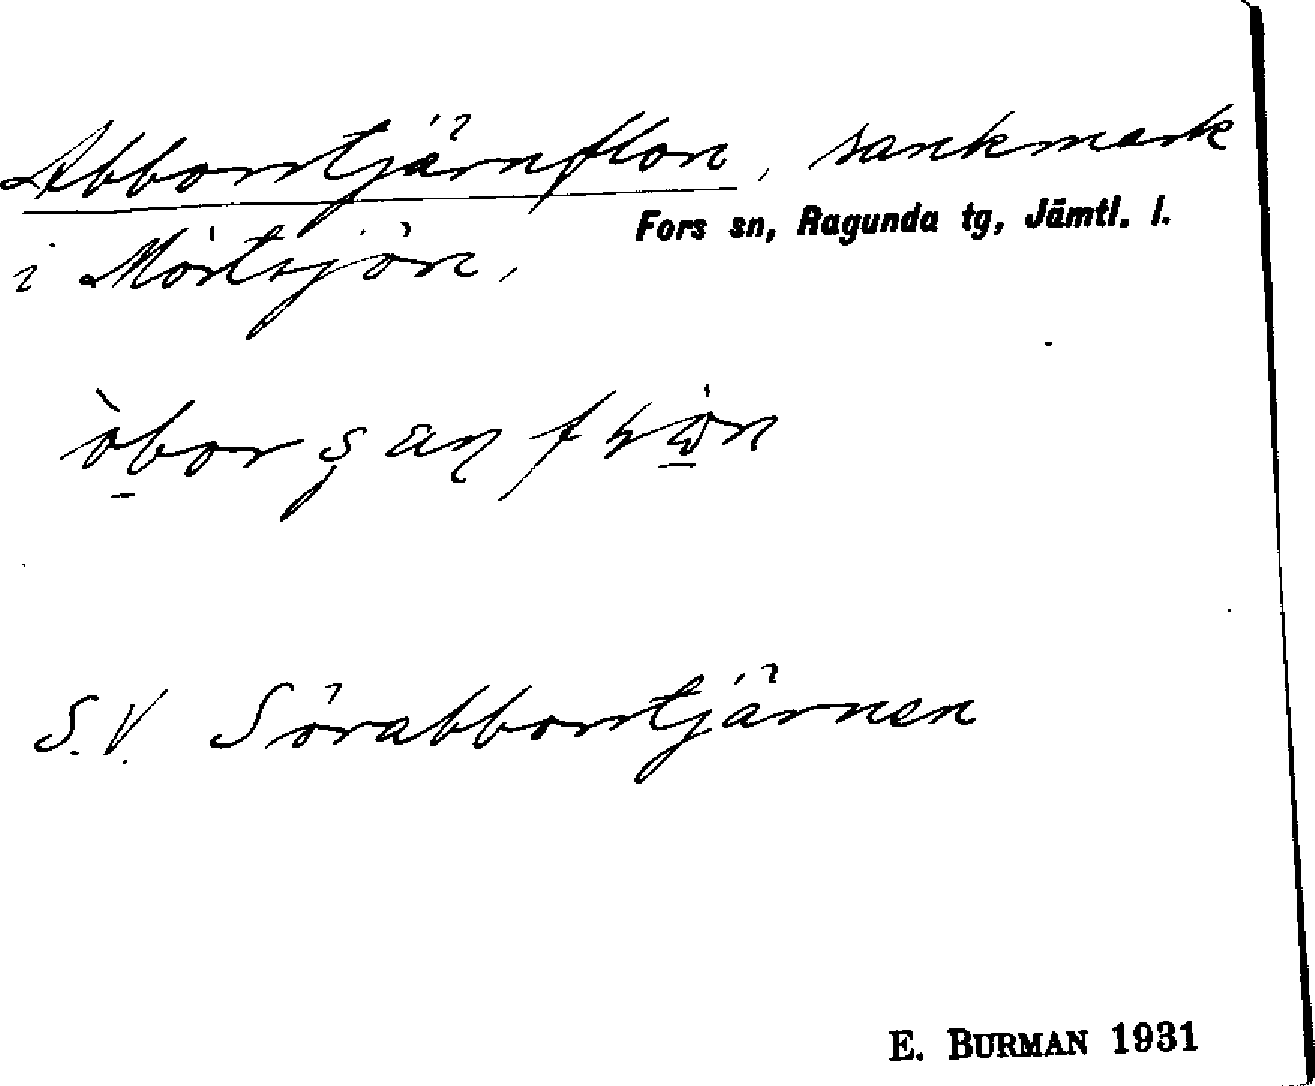 Abborrtjärnflon, sankmark
Fors sn, Ragunda tg, Jämtl. l.
i Mörtsjön,
S.V. Sörabborrtjärnen
E. BURMAN 1931